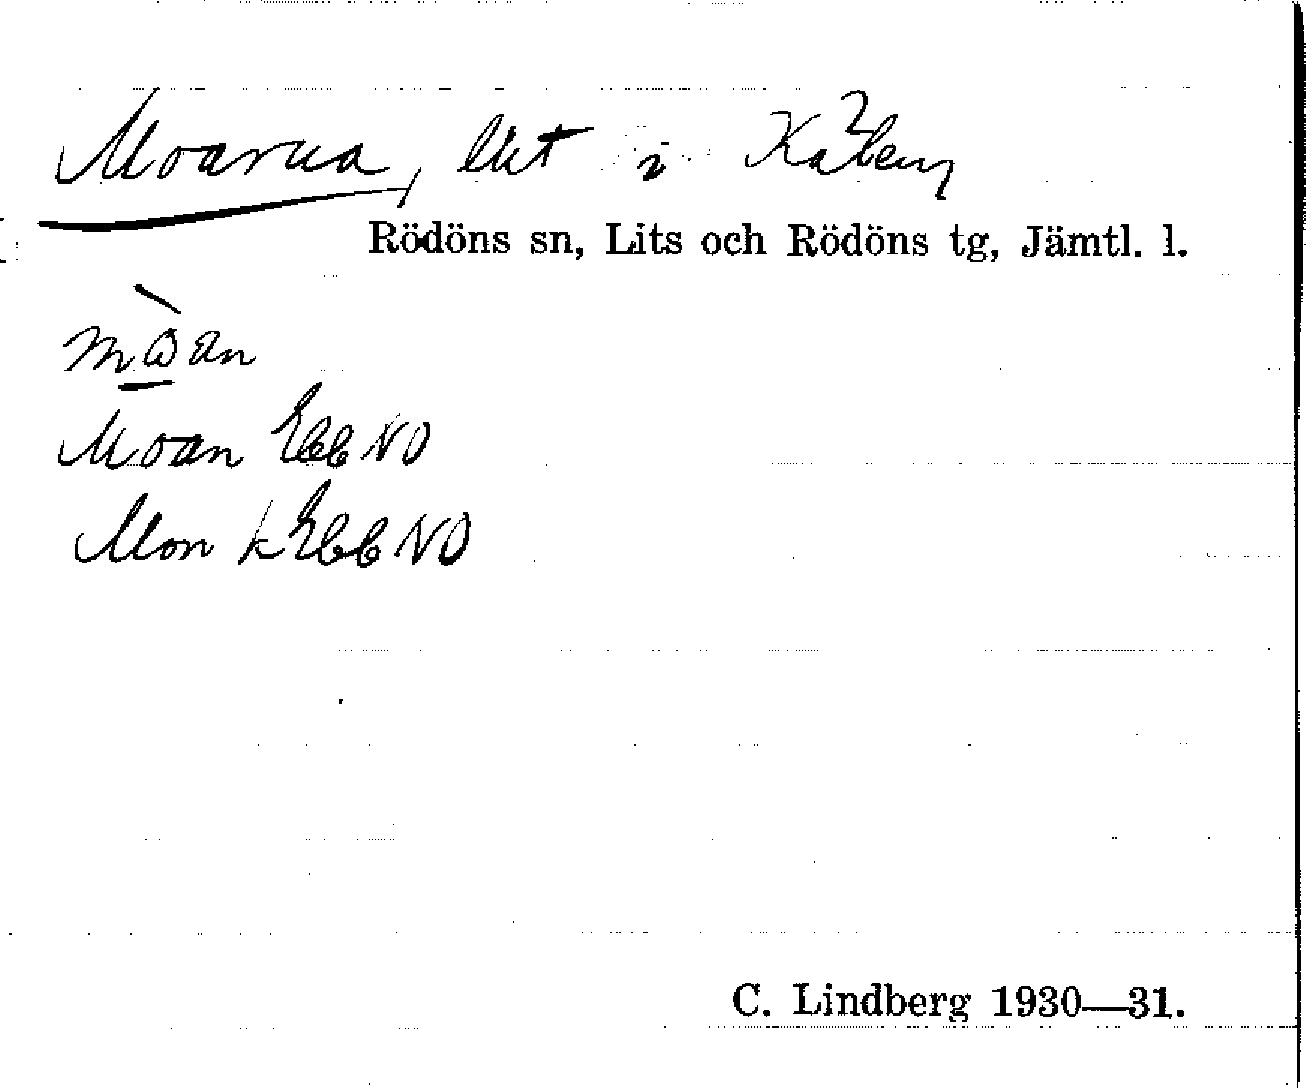 Moarna, litet i Kälen
Rödöns sn, Lits och Rödöns tg, Jämtl. l.
Moan Ebb NO
Mon k Ebb NO
C. Lindberg 1930—31.